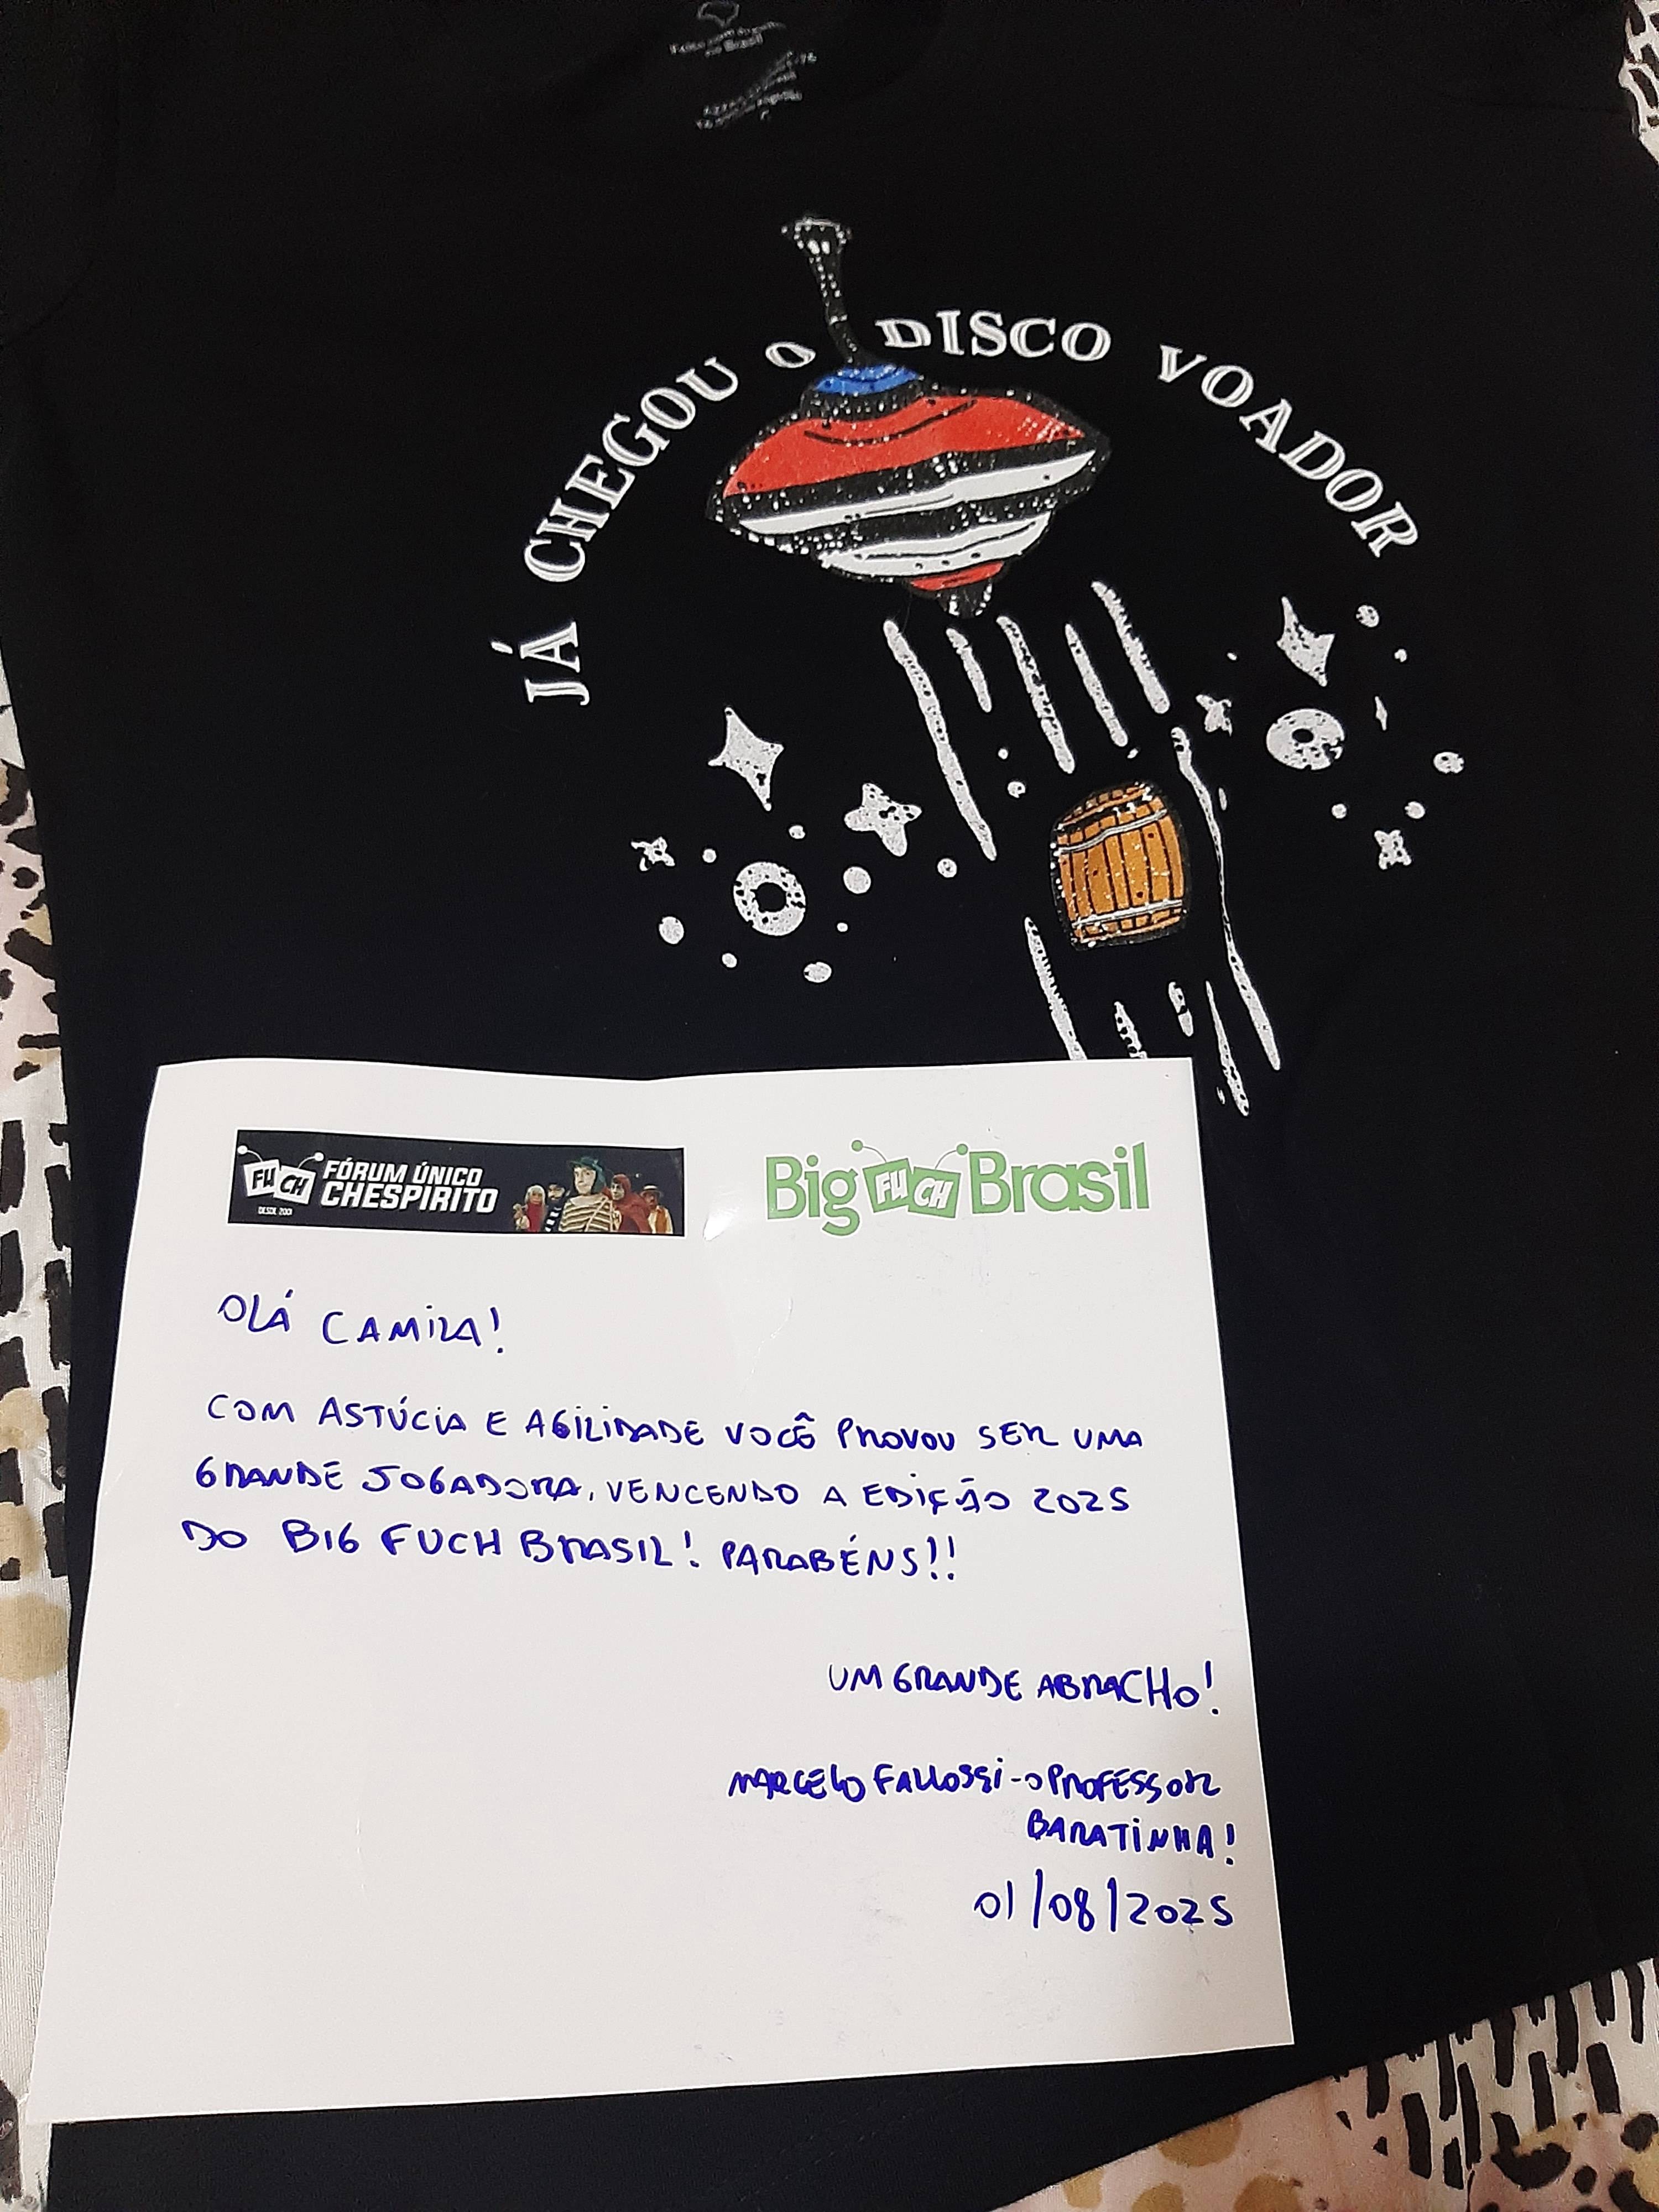 no Brasil
JÁ CHEGOU O DISCO VOADOR
FUCH FÓRUM ÚNICO
CHESPIRITO
DESDE 2001
Big FUCH Brasil
OLÁ CAMILA!
COM ASTÚCIA E AGILIDADE VOCÊ PROVOU SER UMA
GRANDE JOGADORA, VENCENDO A EDIÇÃO 2025
DO BIG FUCH BRASIL! PARABÉNS!!
UM GRANDE ABRACHO!
MARCELO FALLOSSI - O PROFESSOR
BARATINHA!
01/08/2025